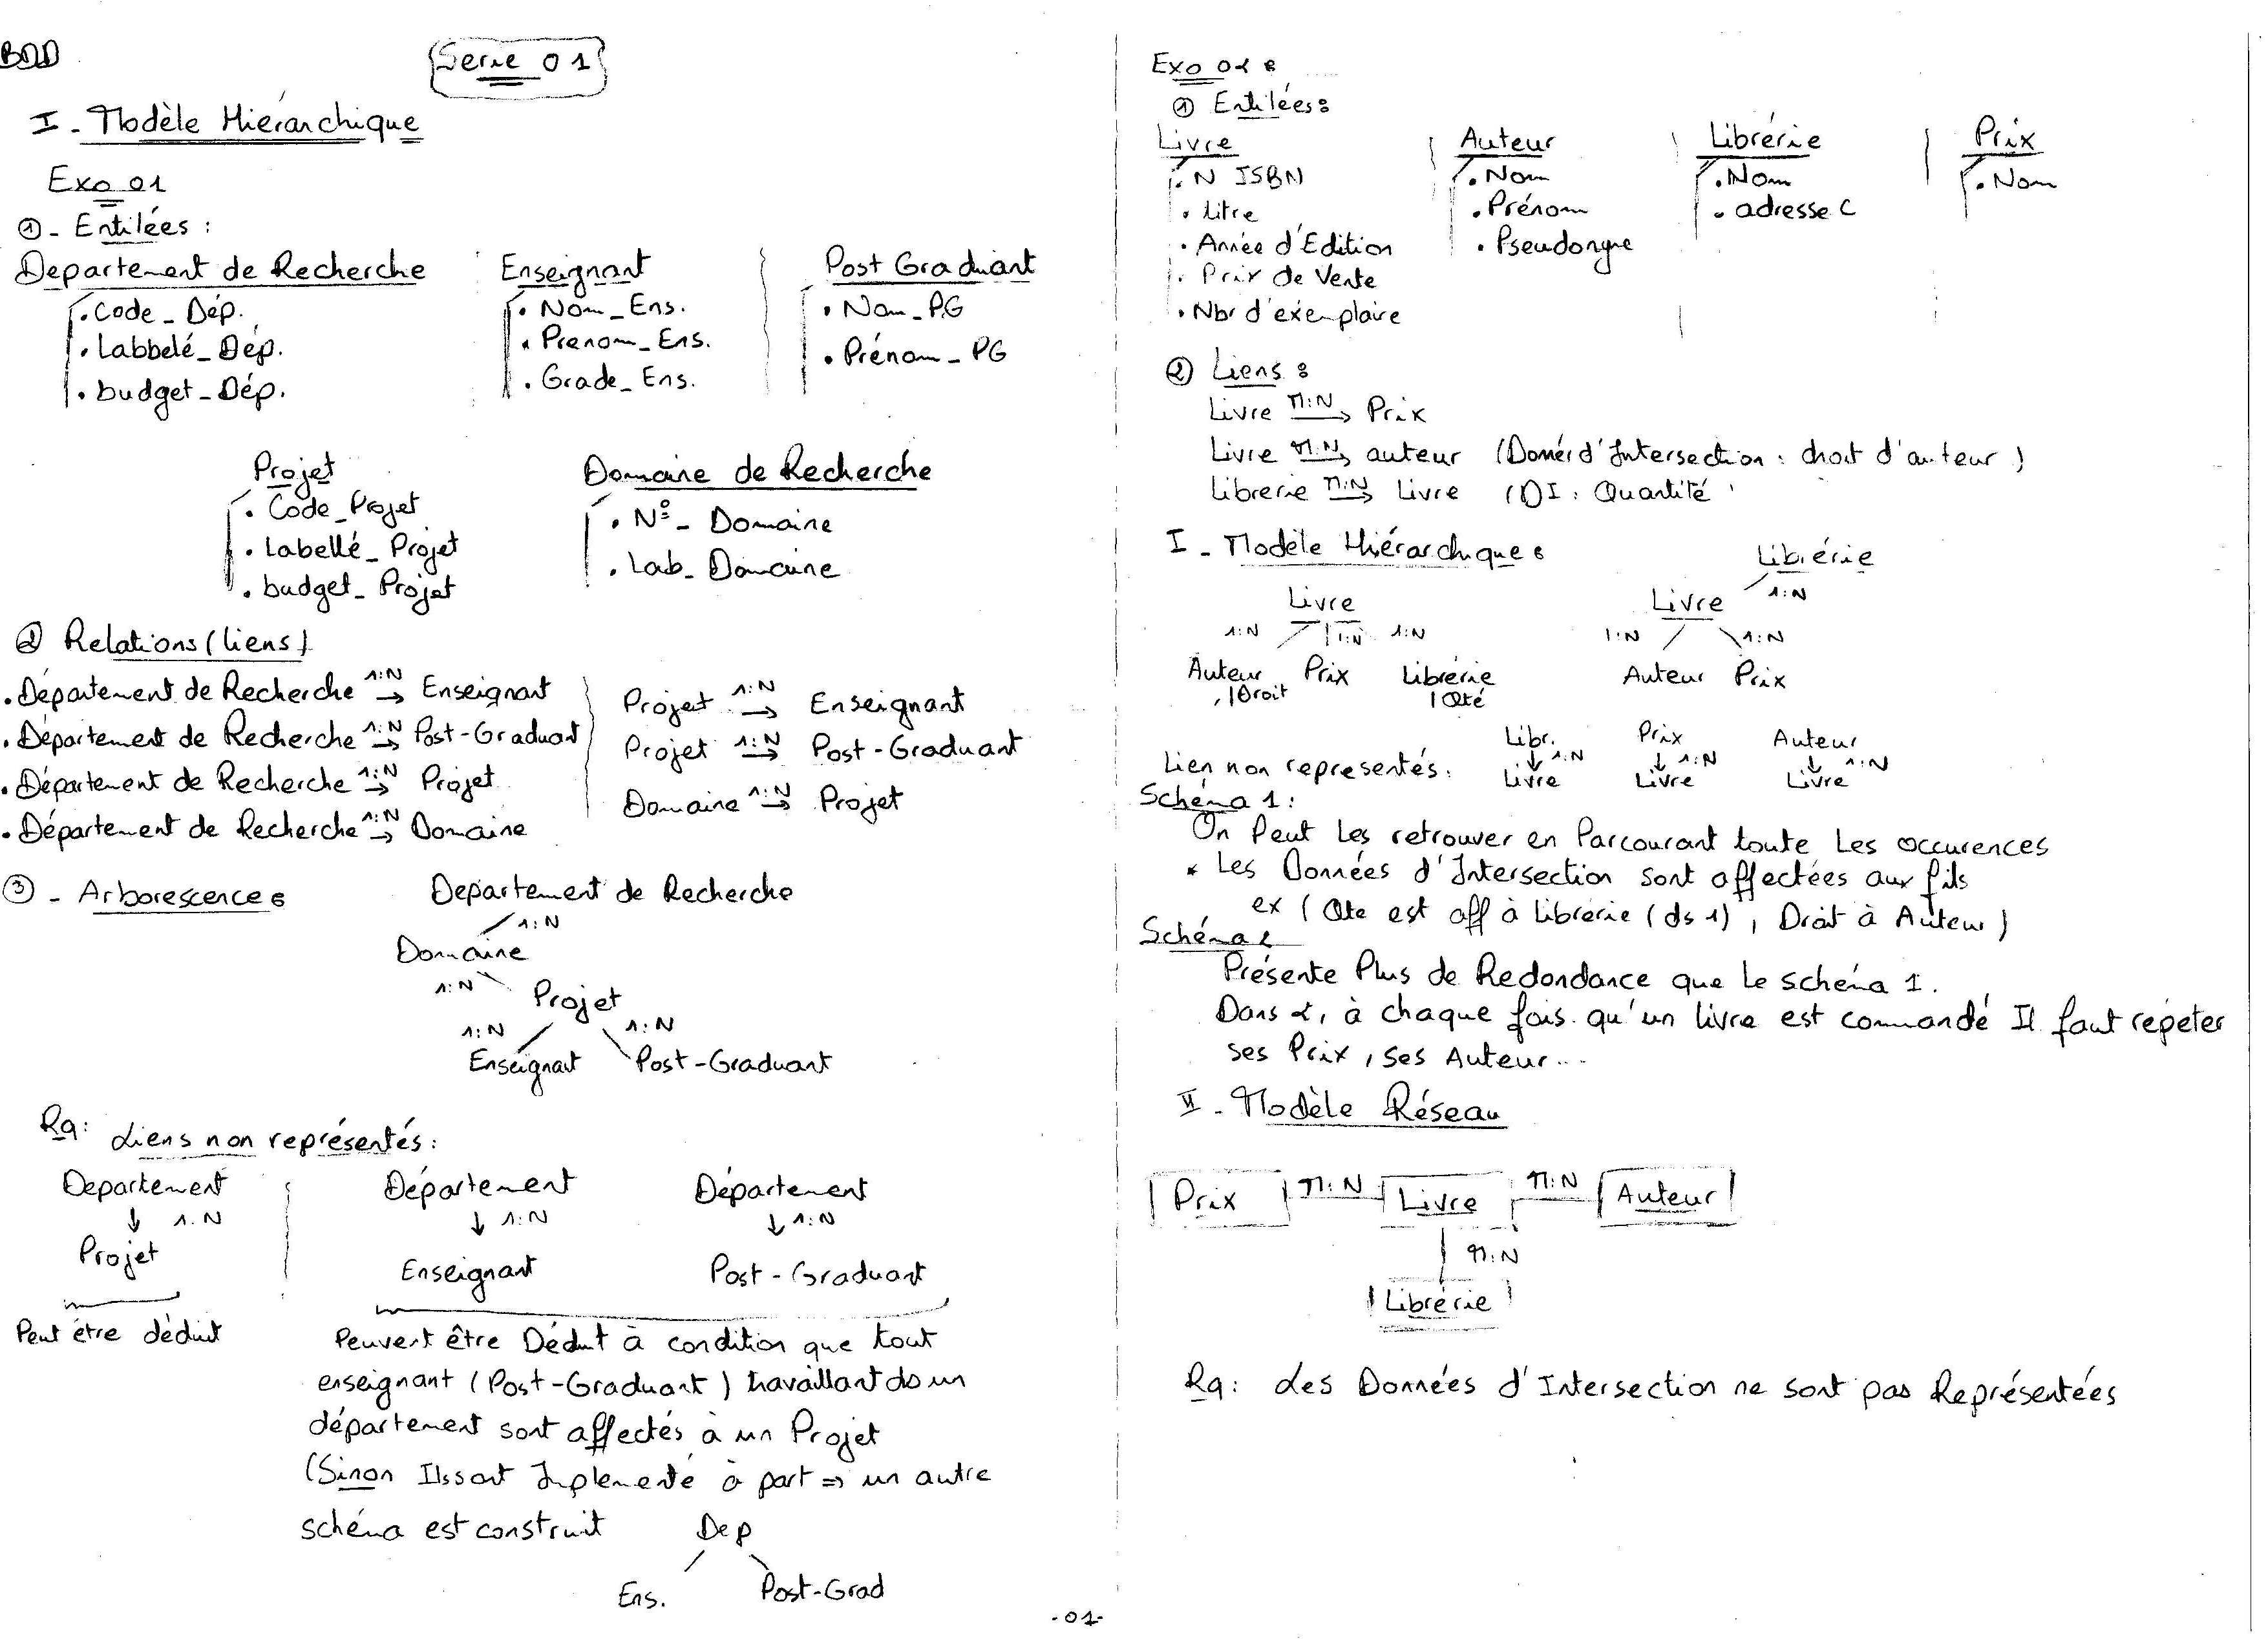 BDD
Serie 01
I - Modèle Hiérarchique
Exo 01
① - Entilées :
Departement de Recherche
. Code_Dép.
. Labbelé_Dép.
. budget_Dép.
Enseignant
. Nom_Ens.
. Prenom_Ens.
. Grade_Ens.
Post Graduant
. Nom_PG
. Prénom_PG
Projet
. Code_Projet
. Labellé_Projet
. budget_Projet
Domaine de Recherche
. N°_Domaine
. Lab_Domaine
② Relations (liens)
. Département de Recherche 1:N → Enseignant
. Département de Recherche 1:N → Post-Graduant
. Département de Recherche 1:N → Projet
. Département de Recherche 1:N → Domaine
Projet 1:N → Enseignant
Projet 1:N → Post-Graduant
Domaine 1:N → Projet
③ - Arborescence :
Departement de Recherche
1:N
Domaine
1:N
Projet
1:N 1:N
Enseignant Post-Graduant
Rq: Liens non représentés :
Departement Département Département
↓ 1:N ↓ 1:N ↓ 1:N
Projet Enseignant Post-Graduant
Peut être déduit
Peuvent être Déduit à condition que tout
enseignant (Post-Graduant) travaillant ds un
département sont affectés à un Projet
(Sinon Ils sont Implementé à part => un autre
schéma est construit
Dep
Ens. Post-Grad
-01-
Exo 02 :
① Entilées :
Livre
. N ISBN
. titre
. Année d'Edition
. Prix de Vente
. Nbr d'exemplaire
Auteur
. Nom
. Prénom
. Pseudonyme
Librérie
. Nom
. adresse C
Prix
. Nom
② Liens :
Livre M:N → Prix
Livre M:N → auteur (Donér d'Intersection : droit d'auteur)
Librerie M:N → Livre (DI : Quantité
I - Modèle Hiérarchique :
Livre
1:N 1:N 1:N
Auteur Prix Librérie
Droit Qté
Librérie
1:N
Livre
1:N 1:N
Auteur Prix
Lien non representés :
Libr. Prix Auteur
↓ 1:N ↓ 1:N ↓ 1:N
Livre Livre Livre
Schéma 1 :
On Peut Les retrouver en Parcourant toute Les occurences
* Les Données d'Intersection sont affectées aux fils
ex ( Qte est aff à Librerie (ds 1), Droit à Auteur)
Schéma 2
Présente Plus de Redondance que Le schéma 1.
Dans 2, à chaque fois qu'un livre est commandé Il faut repéter
ses Prix, ses Auteur...
II - Modèle Réseau
Prix M:N Livre M:N Auteur
M:N
Librérie
Rq: Les Données d'Intersection ne sont pas Représentées